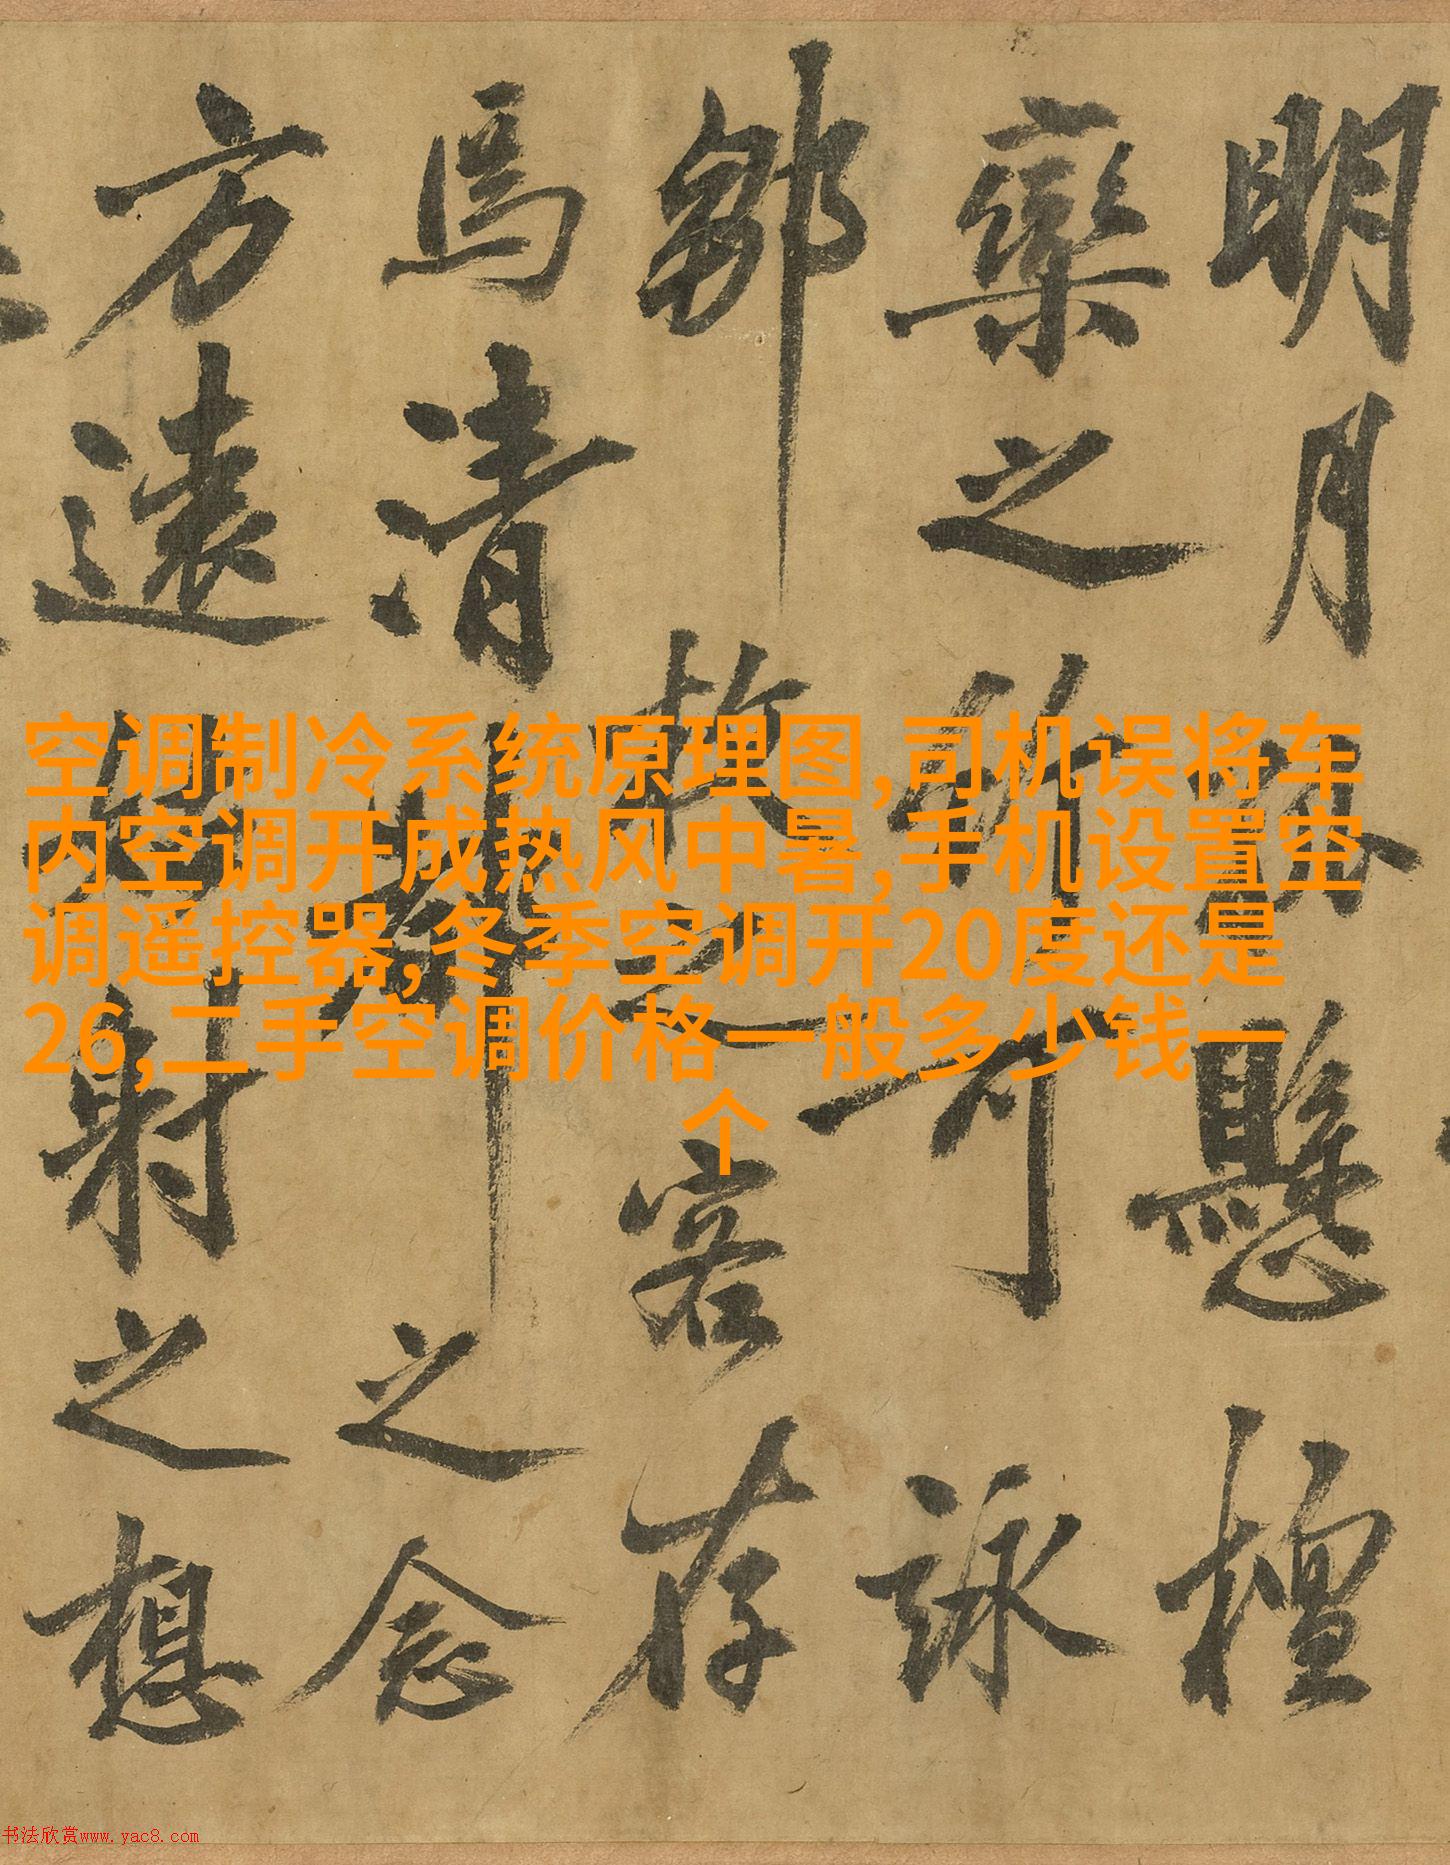 明月懸檀
欒之所可詠
鄒枚之客存
馬清之念
方遠射之想
空调制冷系统原理图,司机误将车
内空调开成热风中暑,手机设置空
调遥控器,冬季空调开20度还是
26,二手空调价格一般多少钱一
个
书法欣赏www.yac8.com